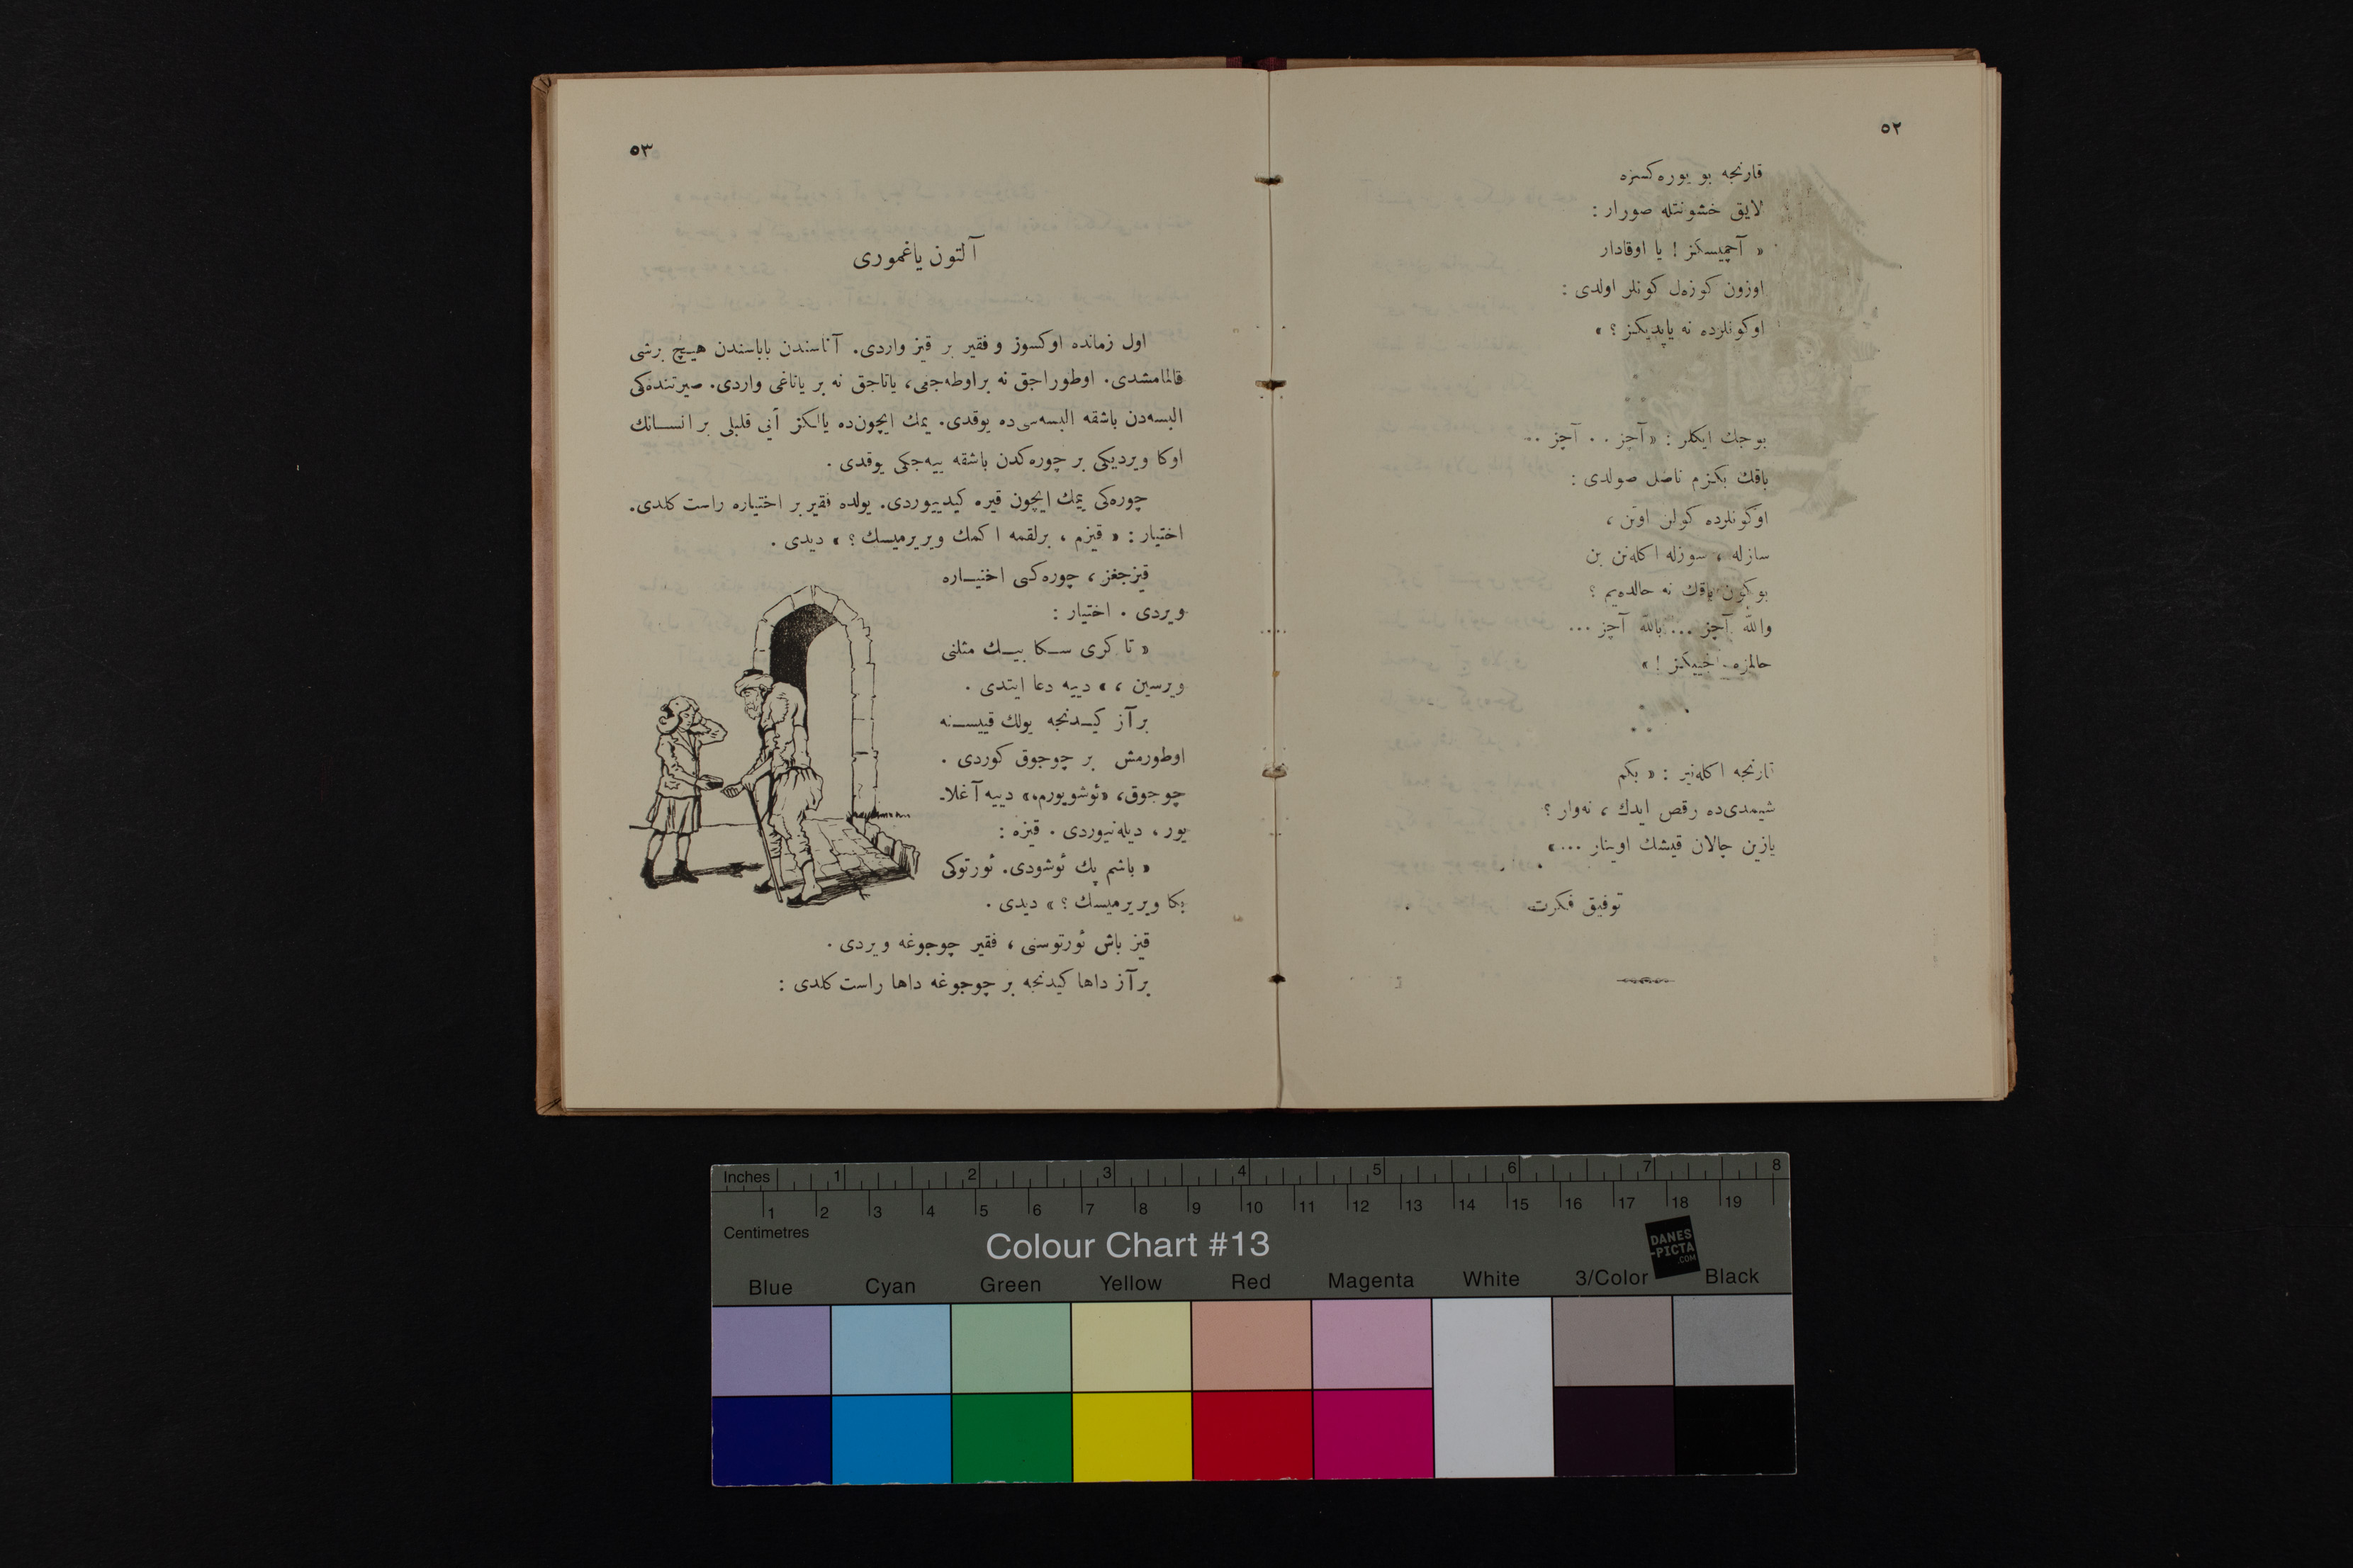 ٥٢
قارنجه بو يوره‌كسزه
لايق خشونتله صورار :
« آجميسكز ! يا اوقادار
اوزون كوزه‌ل كونلر اولدى :
اوكونلرده نه ياپديكز ؟ »
بوجك ايكلر : « آچز . . آچز ..
باقك بكزم ناصل صولدى :
اوكونلرده كولن اوتن ،
سازله ، سوزله اكله‌نن بن
بوكون باقك نه حالده‌يم ؟
والله آچز ... بالله آچز ...
حالمزه آجييكز ! »
قارنجه اكله‌نير : « بكم
شيمدى‌ده رقص ايدك ، نه‌وار ؟
يازين چالان قيشك اوينار ... »
توفيق فكرت
٥٣
آلتون ياغمورى
اول زمانده اوكسوز و فقير بر قيز واردى. آناسندن باباسندن هيچ برشى
قالمامشدى. اوطوراجق نه براوطه‌جغى، ياتاجق نه بر ياتاغى واردى. صيرتنده‌كى
البسه‌دن باشقه البسه‌سى‌ده يوقدى. يمك ايچون‌ده يالكز آيى قلبلى بر انسانك
اوكا ويرديكى بر چوره‌كدن باشقه ييه‌جكى يوقدى .
چوره‌كى يمك ايچون قيره كيدييوردى. يولده فقير بر اختياره راست كلدى.
اختيار : « قيزم ، برلقمه اكمك ويررميسك ؟ » ديدى .
قيزجغز ، چوره‌كى اختياره
ويردى . اختيار :
« تاكرى سكا بيك مثلنى
ويرسين ، » دييه دعا ايتدى .
برآز كيدنجه يولك قييسنه
اوطورمش بر چوجوق كوردى .
چوجوق، «ئوشويورم،» دييه آغلا-
يور ، ديله‌نيوردى . قيزه :
« باشم پك ئوشودى. ئورتوكى
بكا ويررميسك ؟ » ديدى .
قيز باش ئورتوسنى ، فقير چوجوغه ويردى .
برآز داها كيدنجه بر چوجوغه داها راست كلدى :
Inches 1 2 3 4 5 6 7 8
1 2 3 4 5 6 7 8 9 10 11 12 13 14 15 16 17 18 19
Centimetres
Colour Chart #13
DANES
-PICTA
.COM
Blue Cyan Green Yellow Red Magenta White 3/Color Black